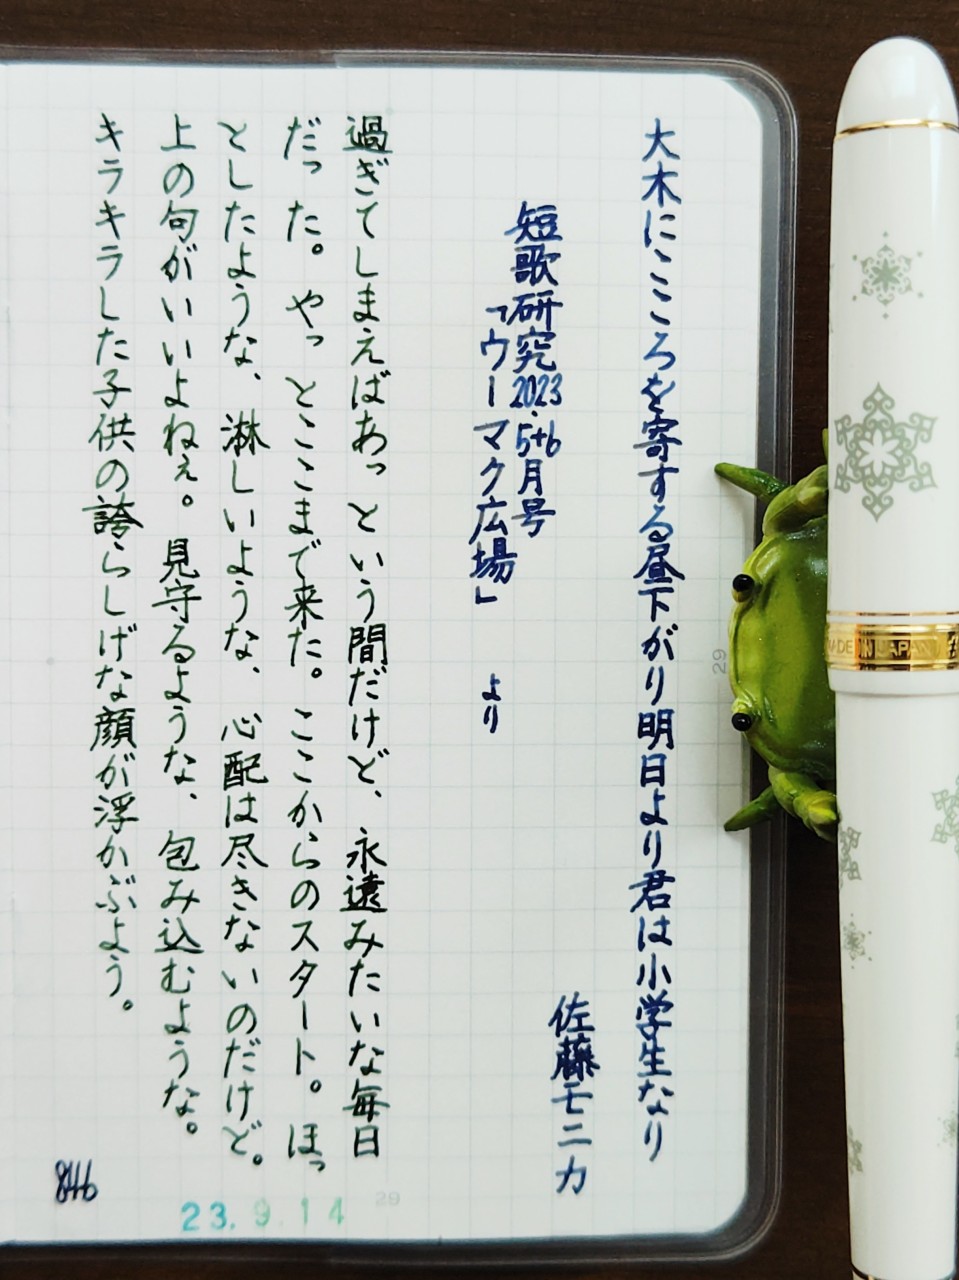 大木にこころを寄する昼下がり明日より君は小学生なり
佐藤モニカ
短歌研究2023.5+6月号
「ウーマク広場」 より
過ぎてしまえばあっという間だけど、永遠みたいな毎日
だった。やっとここまで来た。ここからのスタート。ほっ
としたような、淋しいような、心配は尽きないのだけど。
上の句がいいよねぇ。見守るような、包み込むような。
キラキラした子供の誇らしげな顔が浮かぶよう。
23.9.14
29
29
MADE IN JAPAN